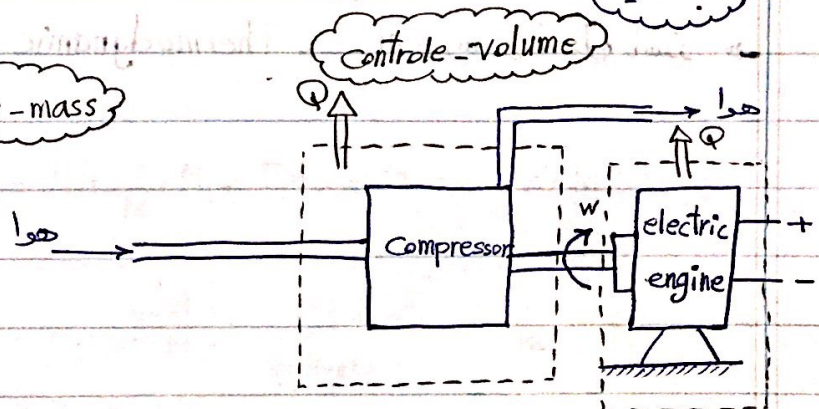 controle_volume
-mass
Q
هوا
Q
هوا
W
Compressor
electric
engine
+
-